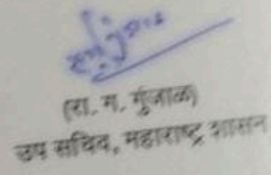 (रा. ग. गुंजाळ)
उप सचिव, महाराष्ट्र शासन